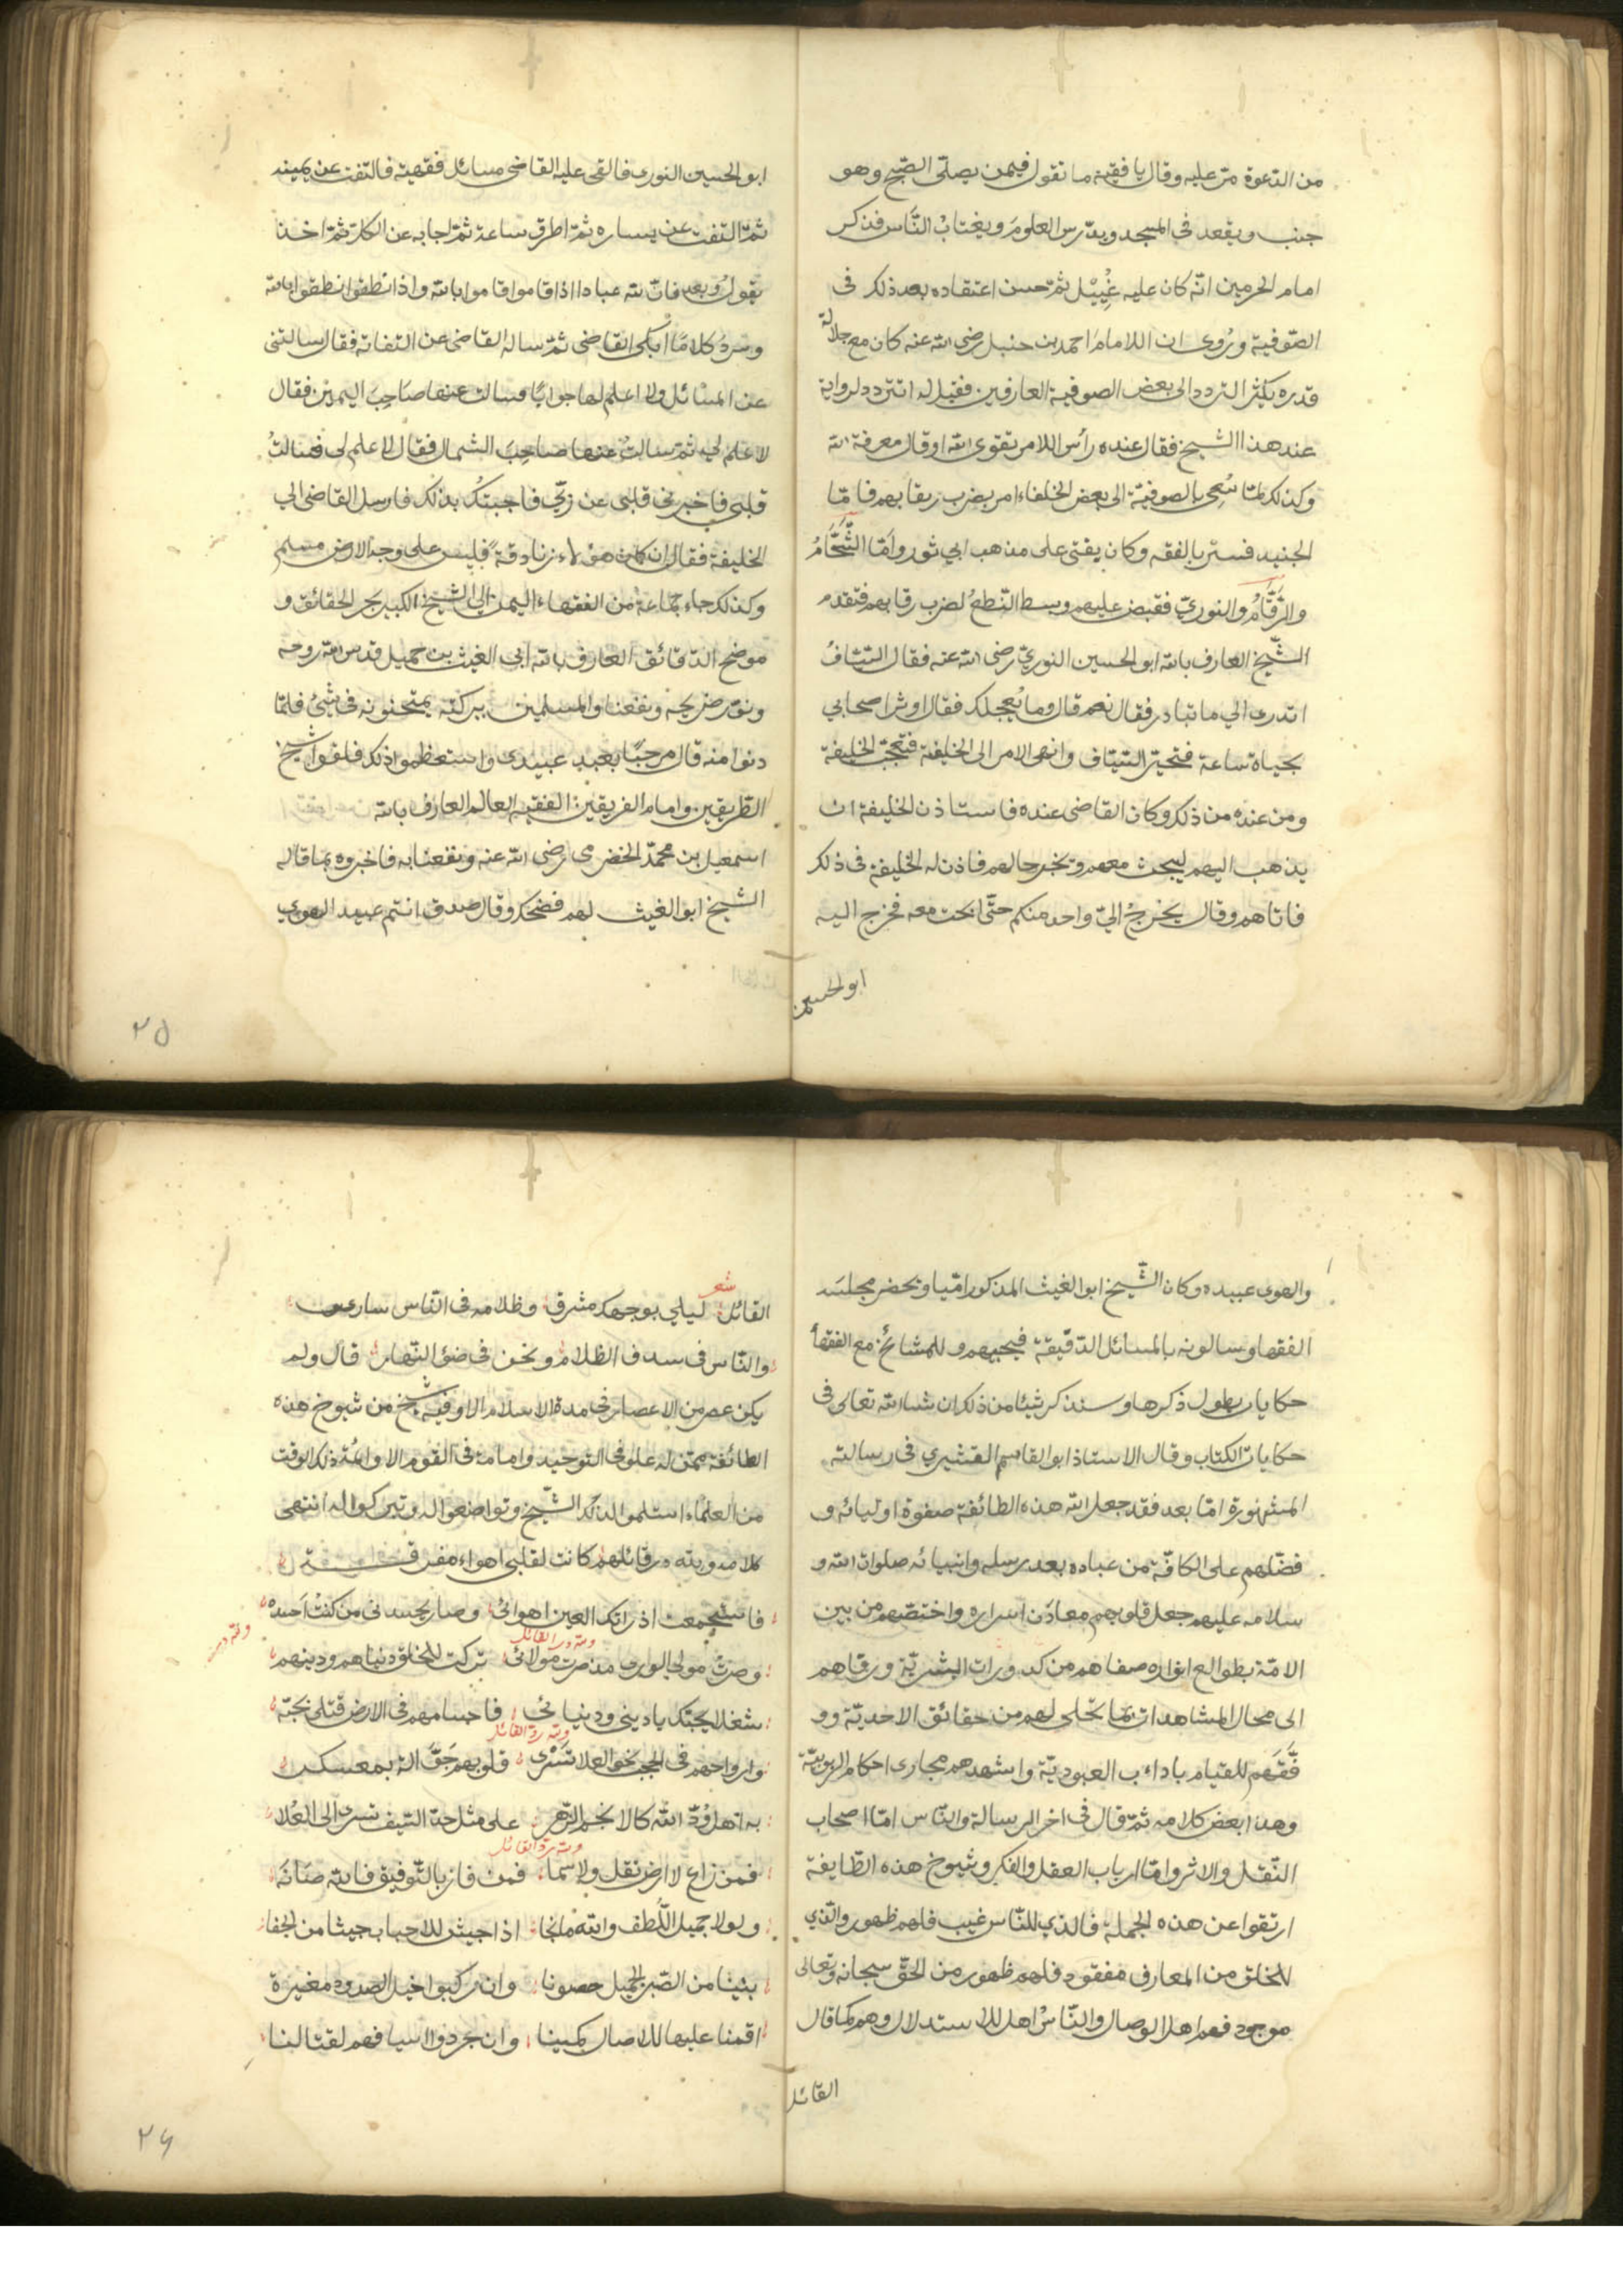 من الدعوة مر عليه وقال يا فقيه ما تقول فيمن يصلى الصبح وهو
جنب ويقعد فى المسجد ويدرس العلوم ويغتاب الناس فذكر
امام الحرمين انّه كان عليه غُسل ثم حسن اعتقاده بعد ذلك فى
الصّوفية ورُوى ان اللامام احمد بن حنبل رضى الله عنه كان مع جلالة
قدره يكثر التردد الى بعض الصوفية العارفين فقيل له اتتردد لرواية
عند هذا الشيخ فقال عنده رأس اللامر تقوى الله او قال معرفة الله
وكذلك لمّا سُعِى بالصوفيّة الى بعض الخلفاء امر بضرب رقابهم فامّا
الجنيد فستر بالفقه وكان يفتى على مذهب ابي ثور وامّا الشَّحَّامُ
والرَّقَّامُ والنوريّ فقبض عليهم وبسط النّطعُ لضرب رقابهم فتقدم
الشّيخ العارف بالله ابو الحسين النوريّ رضى الله عنه فقال السّيّافُ
اتدرى الي ما تبادر فقال نعم قال وما يُعجلك فقال اوثر اصحابي
بحياة ساعة فتحيّر السّيّاف وانهى الامر الى الخليفة فتعجّب الخليفة
ومن عنده من ذلك وكان القاضى عنده فاستاذن الخليفة ان
يذهب اليهم ليبحث معهم ويخبر حالهم فاذن له الخليفة فى ذلك
فاتاهم وقال يخرجُ اليّ واحد منكم حتّى ابحث معه فخرج اليه
ابو الحسين
ابو الحسين النورى فالقى عليه القاضى مسائل فقهية فالتفت عن يمينه
ثمّ التفت عن يساره ثمّ اطرق ساعة ثمّ اجابه عن الكلّ ثمّ اخذ
يقولُ وبعد فانّ لله عبادا اذا قاموا قاموا بالله واذا نطقوا نطقوا بالله
وسردُ كلامًا ابكى القاضى ثمّ ساله القاضى عن التفاته فقال سالتنى
عن المسائل ولا اعلم لها جوابًا فسالت عنها صَاحِبَ اليمين فقال
لا علم لي ثمّ سالتُ عنها صاحِبَ الشمال فقال لا علم لى فسالتُ
قلبى فاخبرنى قلبى عن ربّي فاجبتكُ بذلك فارسل القاضى الي
الخليفة فقال ان كان هؤلاء زنادقة فليس على وجه الارض مسلم
وكذلك جاء جماعة من الفقهاء اليمن الى الشيخ الكبير بحر الحقائق و
موضح الدّقائق العارف بالله ابى الغيث بن جميل قدس الله روحه
ونوّر ضريحه ونفعنا والمسلمين ببركته يمتحنونه فى شئ فلمّا
دنوا منه قال مرحبًا بعبيد عبيدى واستعظموا ذلك فلقوا شيخ
الطّريقين وامام الفريقين الفقيه العالم العارف بالله
اسمعيل بن محمّد الحضرمى رضى الله عنه ونفعنا به فاخبروه بما قاله
الشيخ ابو الغيث لهم فضحك وقال صدق انتم عبيد الهوي
٢٥
والهوى عبيده وكان الشّيخ ابو الغيث المذكور امّيا ويحضر مجلسَه
الفقها وسالونه بالمسائل الدّقيقة فيجيبهم وللمشائخ مع الفقهأ
حكايات يطول ذكرها وسنذكر شيئا من ذلك ان شاالله تعالى فى
حكايات الكتاب وقال الاستاذ ابو القاسم القشيري فى رسالته
المشهورة امّا بعد فقد جعل الله هذه الطائفة صفوة اوليائه و
فضّلهم على الكافّة من عباده بعد رسله وانبيائه صلوات الله و
سلامه عليهم جعل قلوبهم معادن اسراره واختصّهم من بين
الامّة بطوالع انواره صفاهم من كدورات البشريّة ورقاهم
الى محال المشاهدات بما تجلى لهم من حقائق الاحديّة وو
فَّقَهم للقيام باداءب العبوديّة واشهدهم مجارى احكام الربوبيّة
وهذا بعض كلامه ثمّ قال فى اخر الرسالة والنّاس امّا اصحاب
النّقل والاثر وامّا ارباب العقل والفكر وشيوخ هذه الطّايفة
ارتقوا عن هذه الجملة فالذي للنّاس غيب فلهم ظهور والّذي
للخلق من المعارف مفقود فلهم ظهور من الحقّ سبحانه وتعالى
موجود فهم اهل الوصال والنّاس اهل للاستدلال وهم كما قال
القائل
شعر
القائل ليلي بوجهك مشرق وظلامه فى النّاس سارى
والنّاس فى سدف الظلام ونحن فى ضؤ النّهار قال ولم
يكن عصر من الاعصار فى مدة الاسلام الا وفيه شيخ من شيوخ هذه
الطائفة ممّن له علو فى التّوحيد وامامة فى القوم الا وائمة ذلك الوقت
من العلمآء استلموا لذلك الشّيخ وتواضعوا له وتبركوا له انتهى
كلامه ولله در قائلهم كانت لقلبى اهواء مفرقة
فاستجمعت اذ راتك العين اهوائى وصار يحسدنى من كنت احسده
ولله در القائل
وصرتُ مولى الورى مذ صرت مولائى تركت للخلق دنياهم ودينهم
شغلا بحبّك يا دينى ودنيائى فاجسامهم فى الارض قتلى بحبّه
ولله درّ القائل
وارواحهم فى الحجب نحو العلا تَسْرى قلوبهم جَوَّالة بمعسكر
به اهل وُدّ الله كالانجم الزّهر على مثل حدّ السّيف نسرى الى العُلا
ولله درّ القائل
فمن زاغ لا ارض تقل ولا سما فمن فاز بالتّوفيق فالله صَانَه
ولولا جميل اللّطف والله ما نجا اذا جيش للاحباب جيشا من الجفا
بنينا من الصّبر الجميل حصونا وان ركبوا خيل الصدود مغيرة
اقمنا عليها للاصال كمينا وان جردوا اسيافهم لقتالنا
٢٦